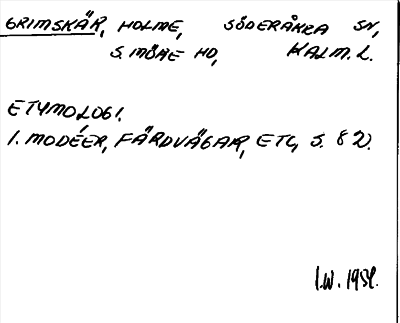 GRIMSKÄR, HOLME, SÖDERÅKRA SN,
S. MÖRE HD, KALM. L.
ETYMOLOGI.
I. MODÉER, FÄRDVÄGAR, ETC, S. 82.
I.W. 1951.